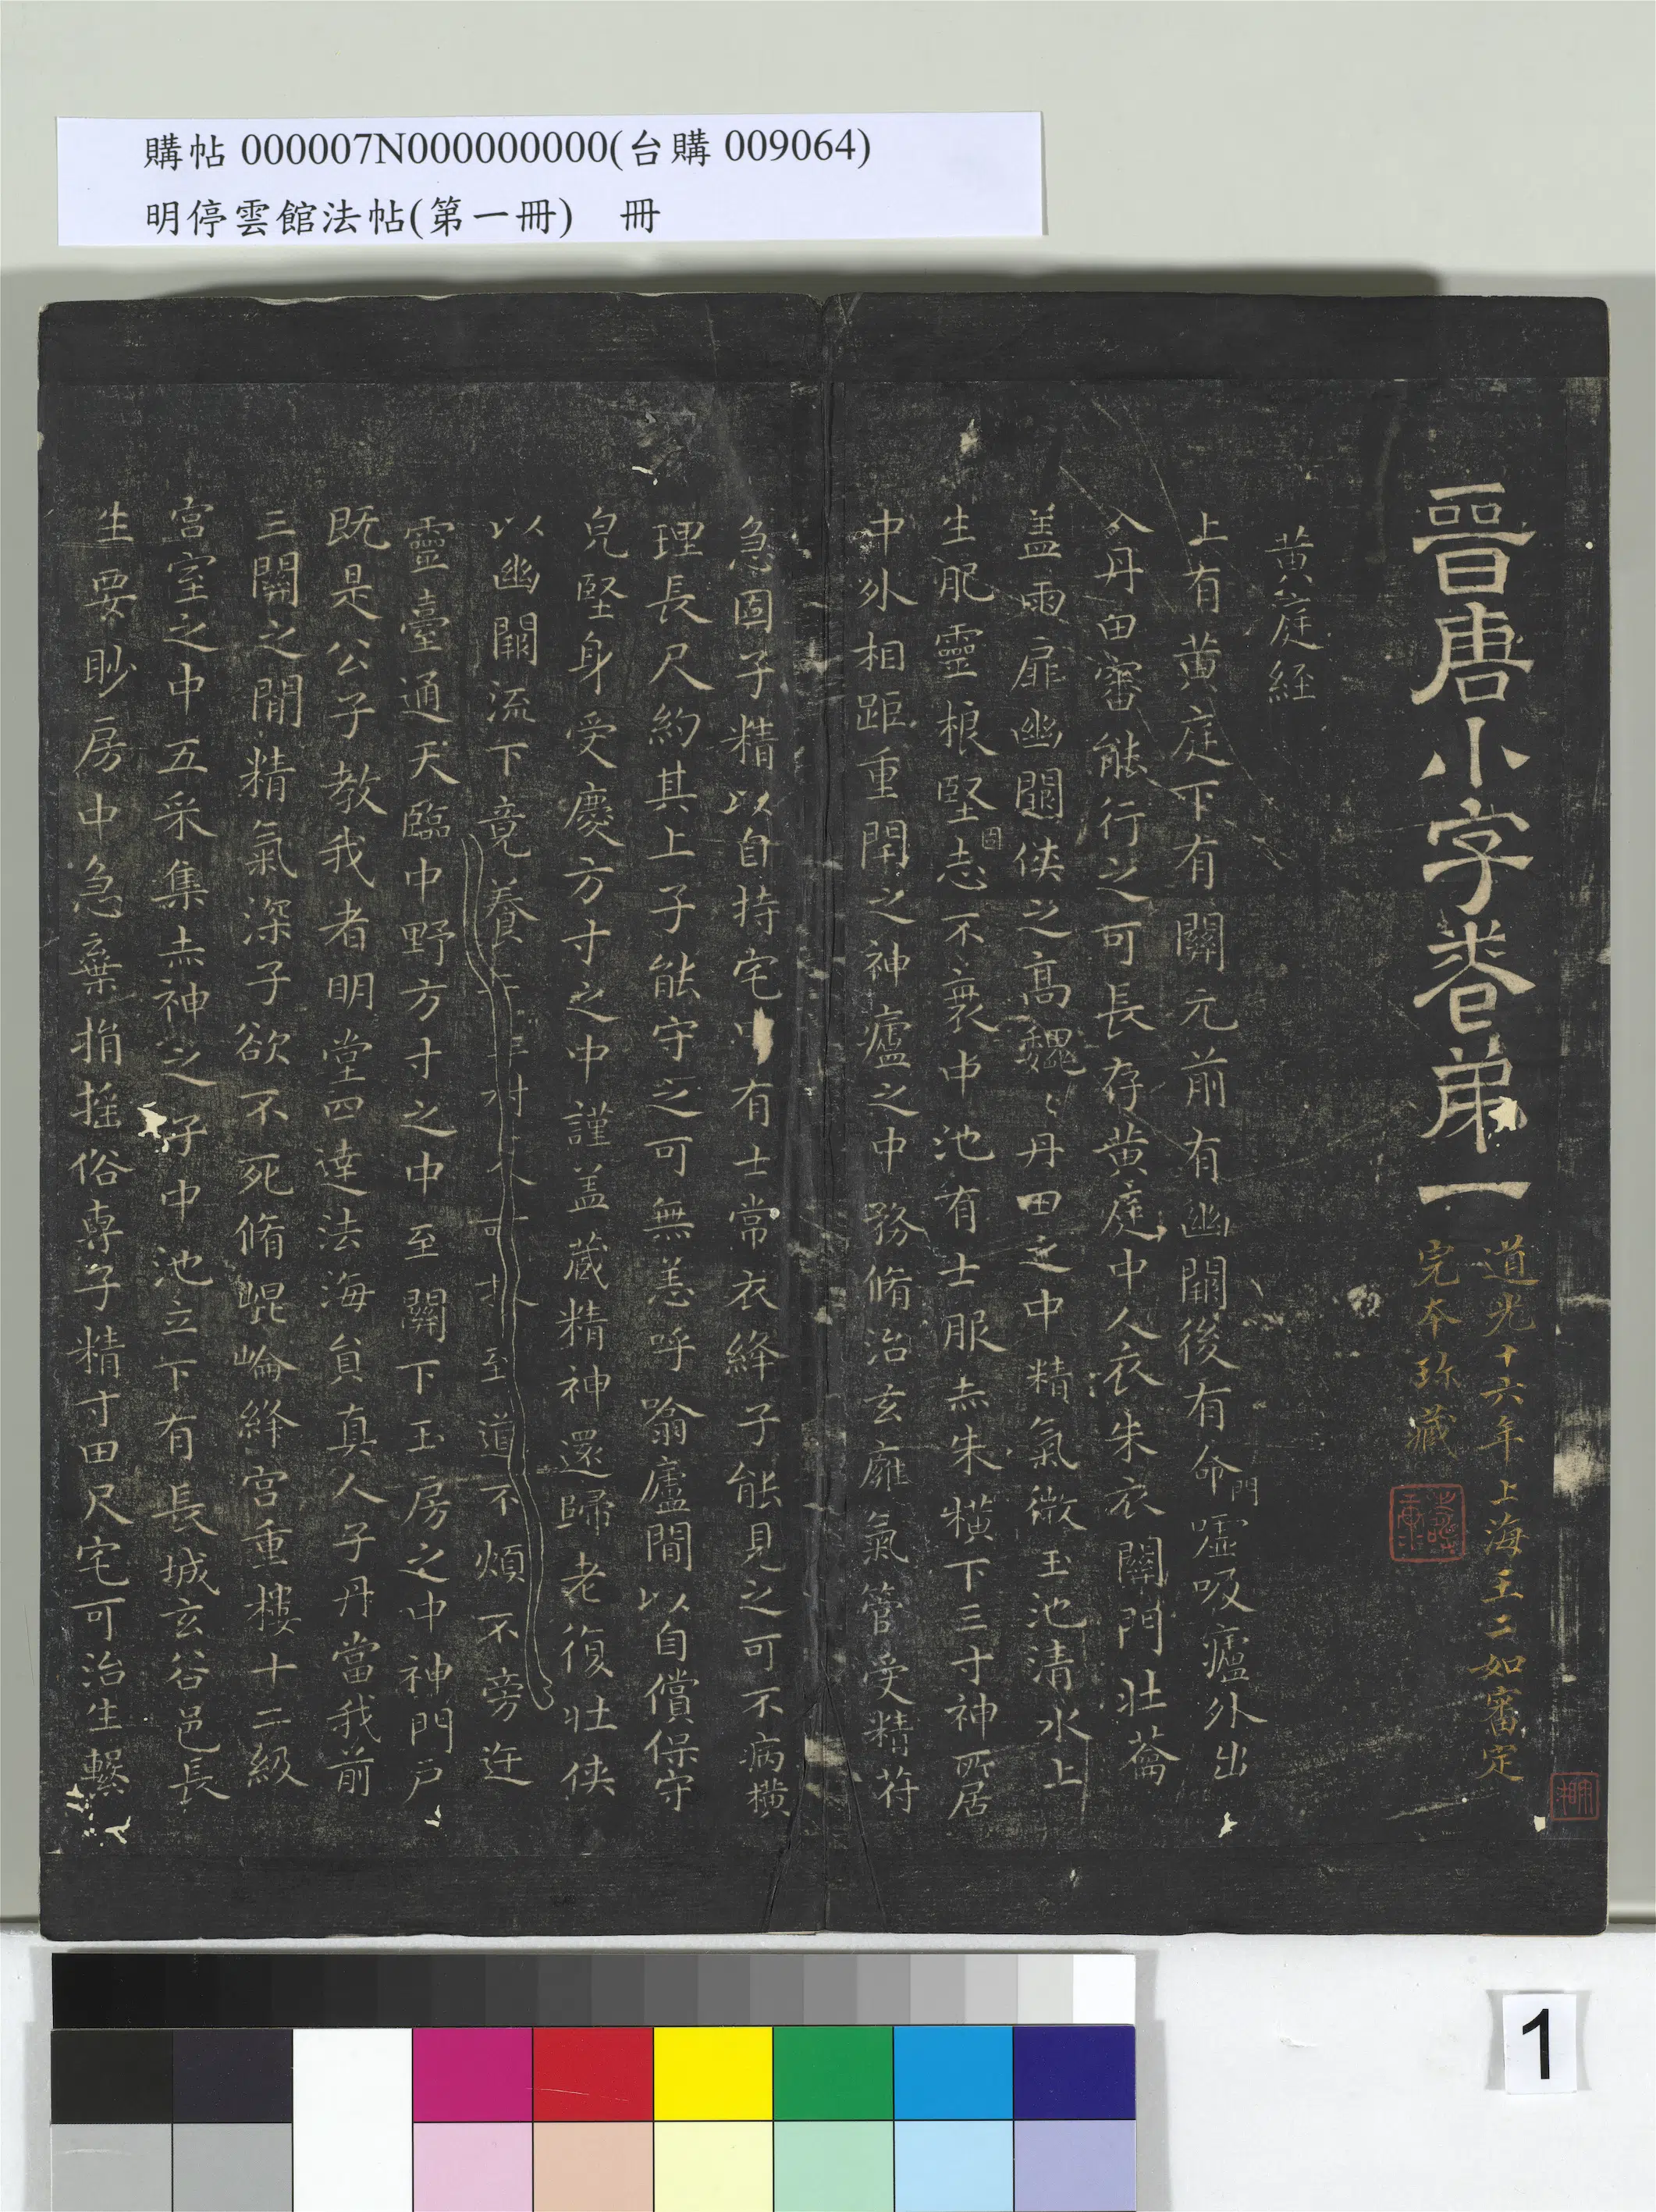 購帖 000007N000000000(台購 009064)
明停雲館法帖(第一冊) 冊
晉唐小字卷弟一
道光十六年上海王二如審定
完本珎藏
黃庭經
上有黃庭下有關元前有幽闕後有命門噓吸廬外出
入丹田審能行之可長存黃庭中人衣朱衣關門壯蘥
盖兩扉幽闕俠之高魏〻丹田之中精氣微玉池清水上
生肥靈根堅固志不衰中池有士服赤朱橫下三寸神所居
中外相距重閇之神廬之中務脩治玄廱氣管受精苻
急固子精以自持宅有士常衣絳子能見之可不病橫
理長尺約其上子能守之可無恙呼噏廬間以自償保守
皃堅身受慶方寸之中謹盖藏精神還歸老復壯俠
以幽闕流下竟養至道不煩不旁迕
靈臺通天臨中野方寸之中至關下玉房之中神門戶
既是公子教我者明堂四達法海負真人子丹當我前
三關之間精氣深子欲不死脩崐崘絳宮重樓十二級
宮室之中五采集赤神之子中池立下有長城玄谷邑長
生要眇房中急棄捐搖俗專子精寸田尺宅可治生繫
1